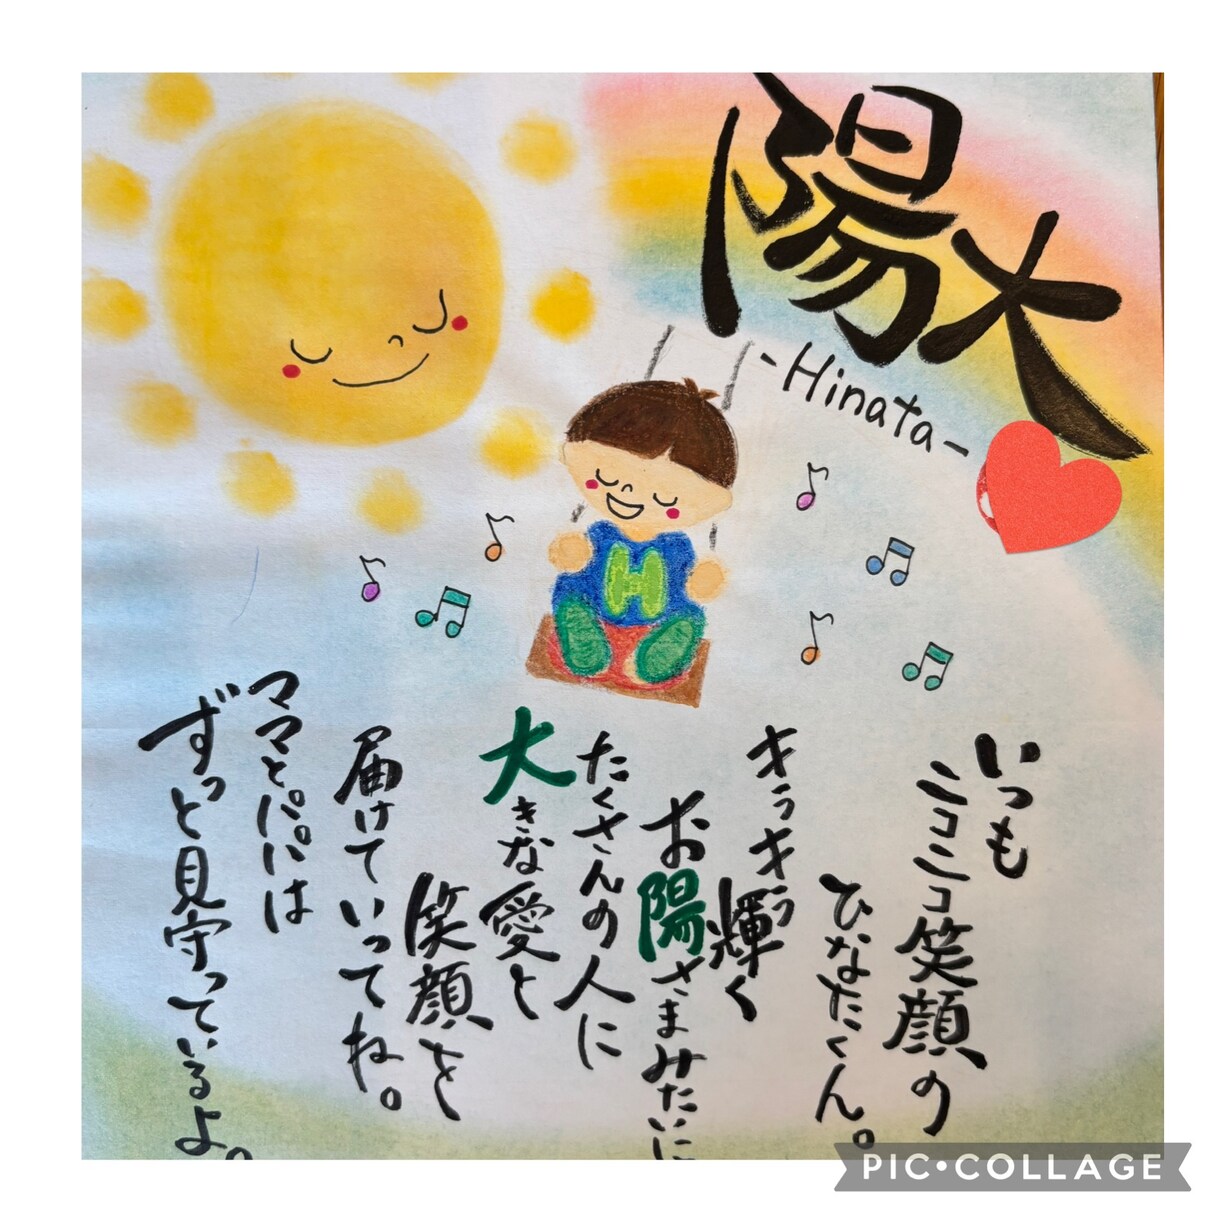 陽大
-Hinata-
H
いつも
ニコニコ笑顔の
ひなたくん。
キラキラ輝く
お陽さまみたいに
たくさんの人に
大きな愛と
笑顔を
届けていってね。
ママとパパは
ずっと見守っているよ。
PIC•COLLAGE